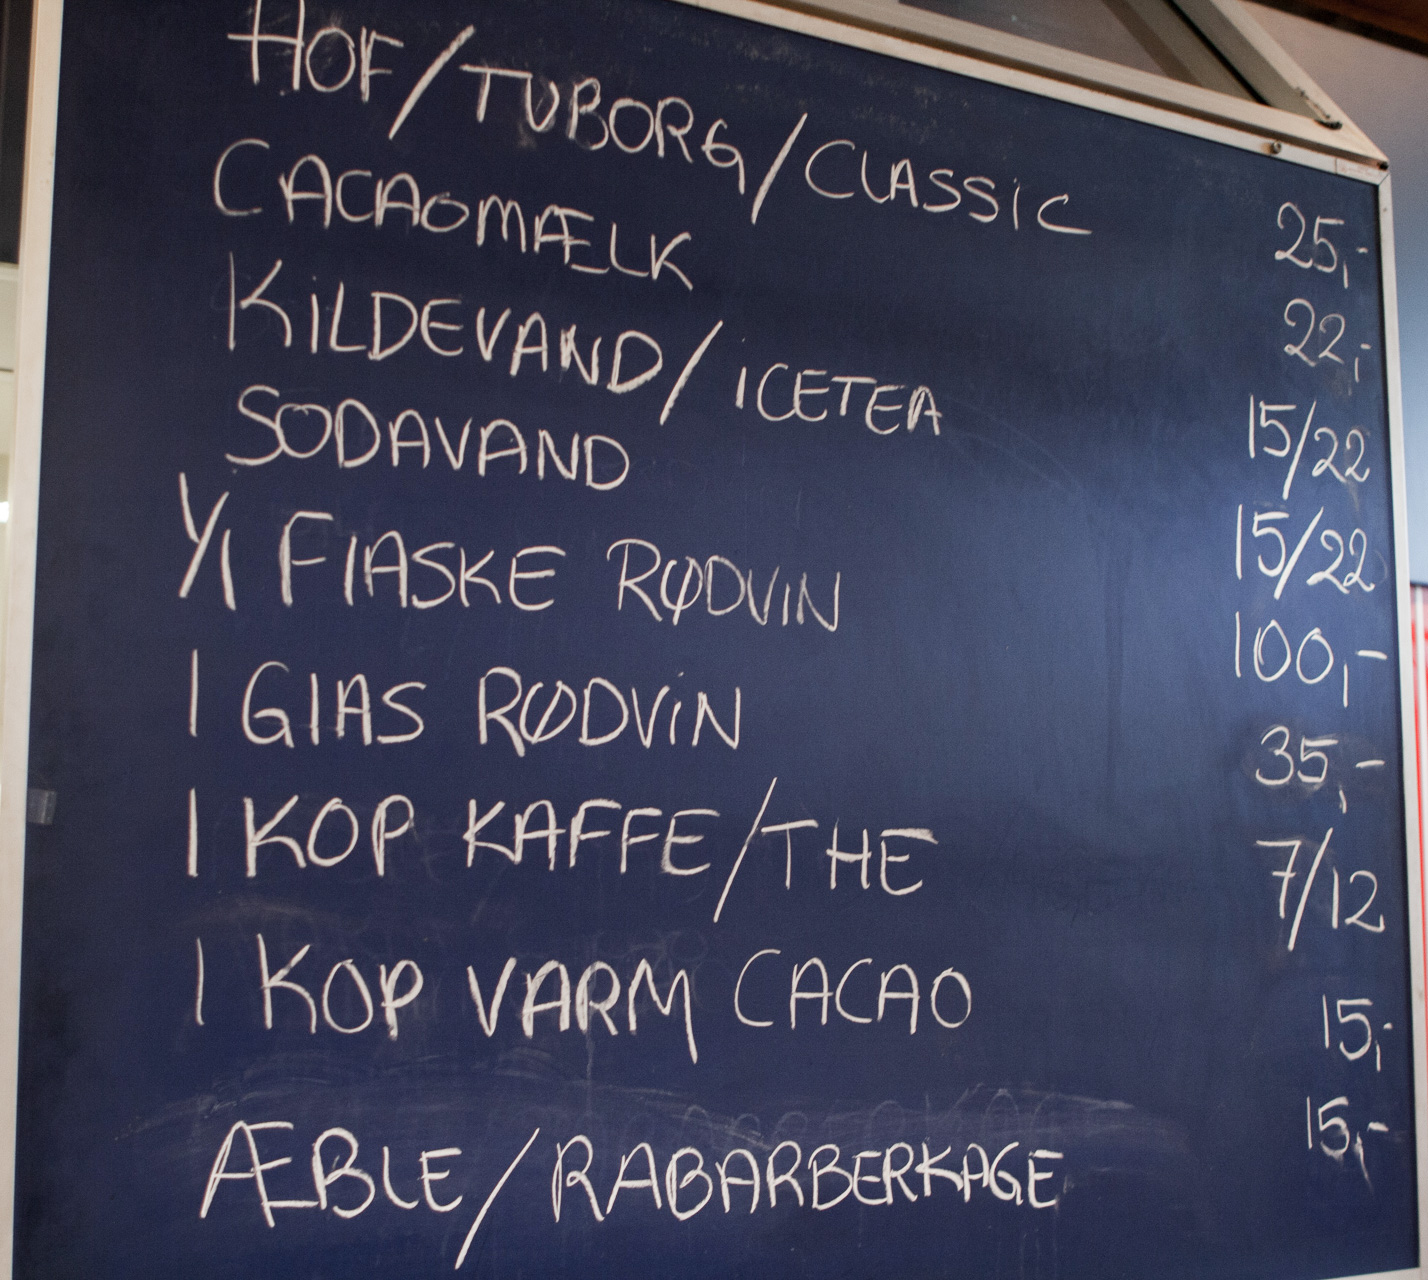 HOF/TUBORG/CLASSiC 25,-
CACAOMÆLK 22,-
KiLDEVAND/iCETEA 15/22
SODAVAND 15/22
1/1 FlASKE RØDViN 100,-
1 GlAS RØDViN 35,-
1 KOP KAFFE/THE 7/12
1 KOP VARM CACAO 15,-
ÆBLE/RABARBERKAGE 15,-